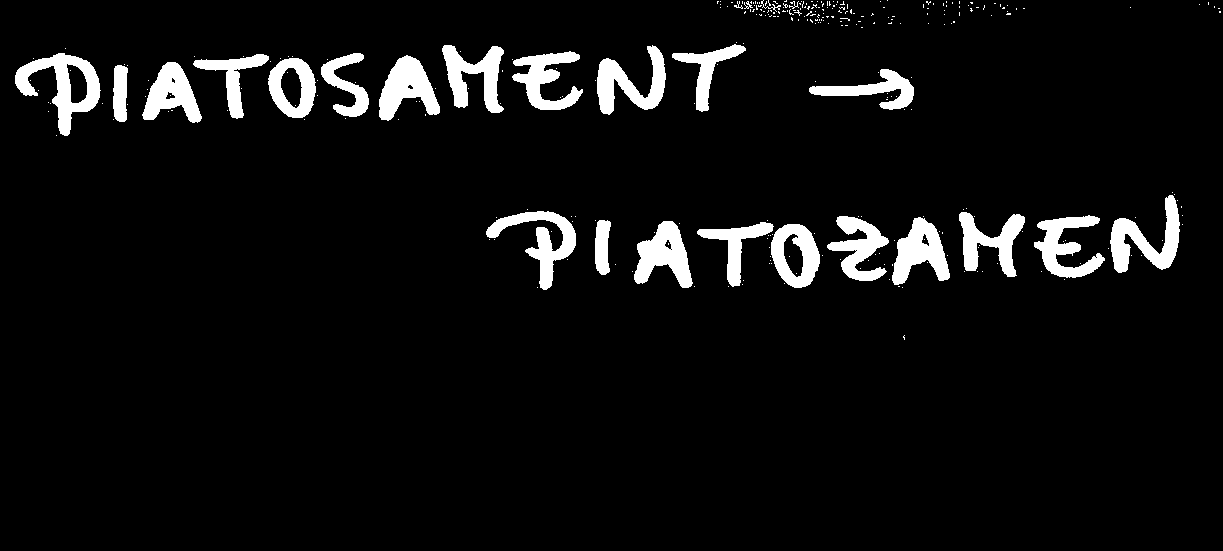 PIATOSAMENT →
PIATOZAMEN